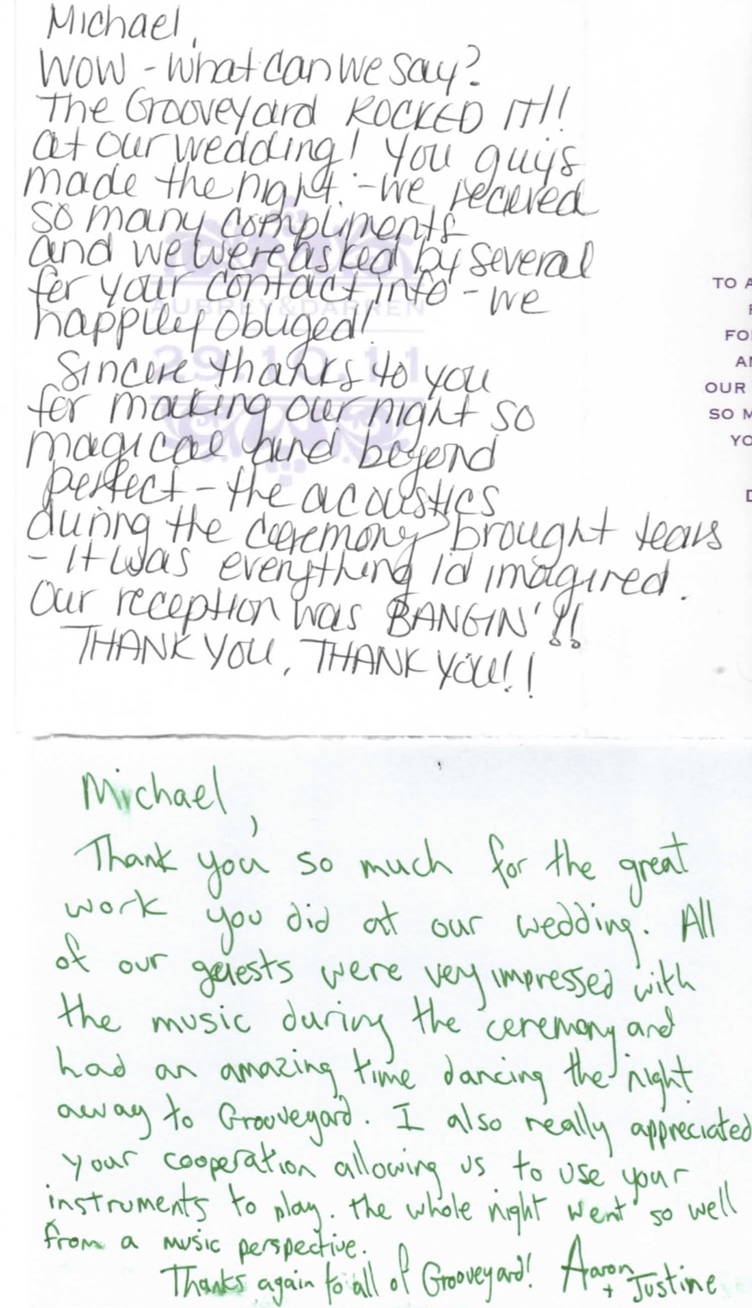 Michael,
WOW - what can we say?
The Grooveyard ROCKED IT!!
at our wedding! You guys
made the night - we received
so many compliments
and we were asked by several
for your contact info - we
happily obliged!
AUBREY&DARREN
29.10.11
Sincere thanks to you
for making our night so
magical and beyond
perfect - the acoustics
during the ceremony brought tears
- It was everything I'd imagined.
Our reception was BANGIN'!!
THANK YOU, THANK YOU!!
TO A
FO
A
OUR
SO M
YO
D
Michael,
Thank you so much for the great
work you did at our wedding. All
of our guests were very impressed with
the music during the ceremony and
had an amazing time dancing the night
away to Grooveyard. I also really appreciated
your cooperation allowing us to use your
instruments to play. The whole night went so well
from a music perspective.
Thanks again to all of Grooveyard! Aaron
+ Justine